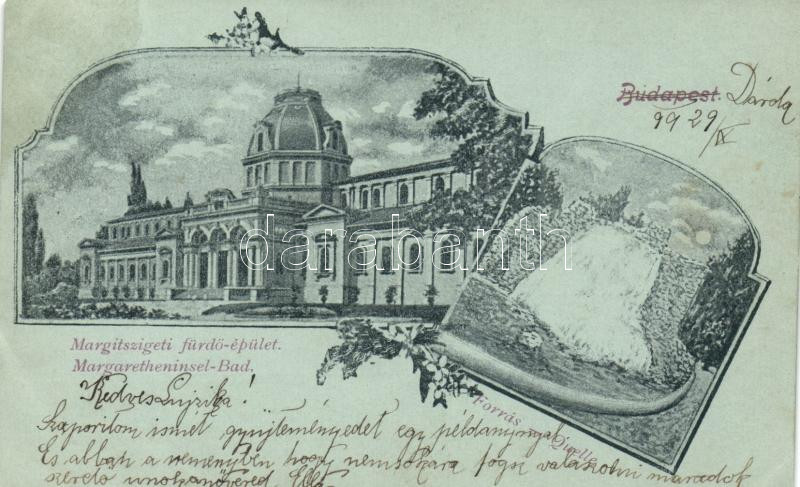 Budapest. Dárda
99 29/IX
darabanth.com
Margitszigeti fürdő-épület.
Margaretheninsel-Bad.
Forrás - Quelle
Kedves Lujzika!
Szaporitom ismét gyüjteményedet egy példánynyal
És abban a reményben hogy nemsokára fogsz válaszolni maradok
szerető unokanővéred Ella